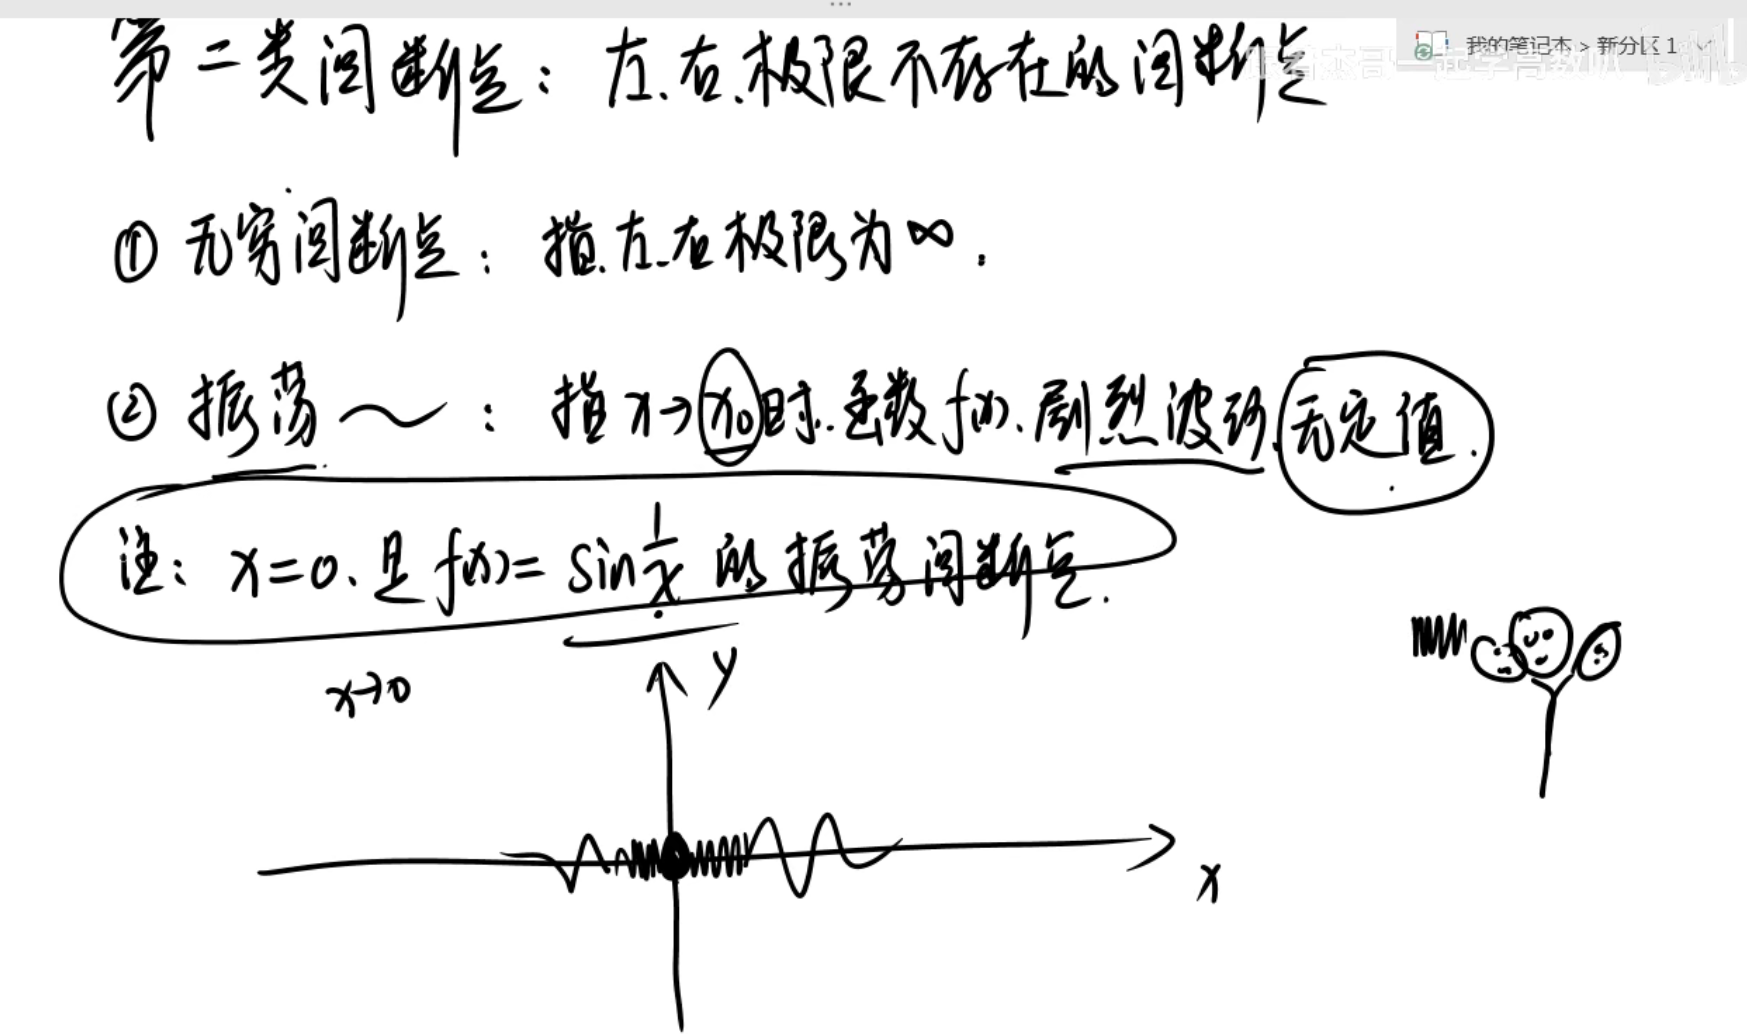 我的笔记本 > 新分区 1
第二类间断点：左.右.极限不存在的间断点
① 无穷间断点：指.左.右极限为∞.
② 振荡～：指x→x₀时.函数f(x).剧烈波动.无定值.
注：x=0.是f(x)=sin 1/x 的振荡间断点.
x→0
y
x